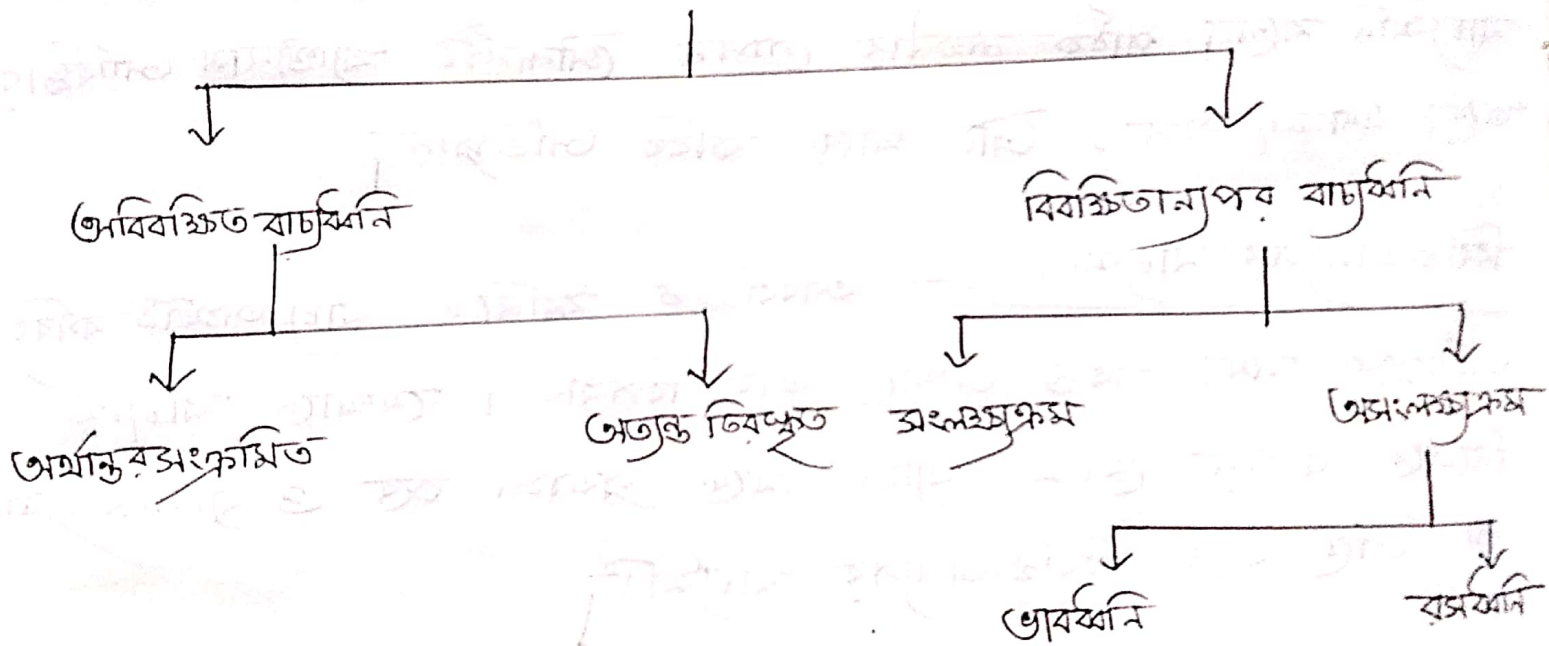 অবিবক্ষিত বাচ্যধ্বনি
বিবক্ষিতান্যপর বাচ্যধ্বনি
অর্থান্তরসংক্রমিত
অত্যন্ত তিরস্কৃত
সংলক্ষ্যক্রম
অসংলক্ষ্যক্রম
ভাবধ্বনি
রসধ্বনি